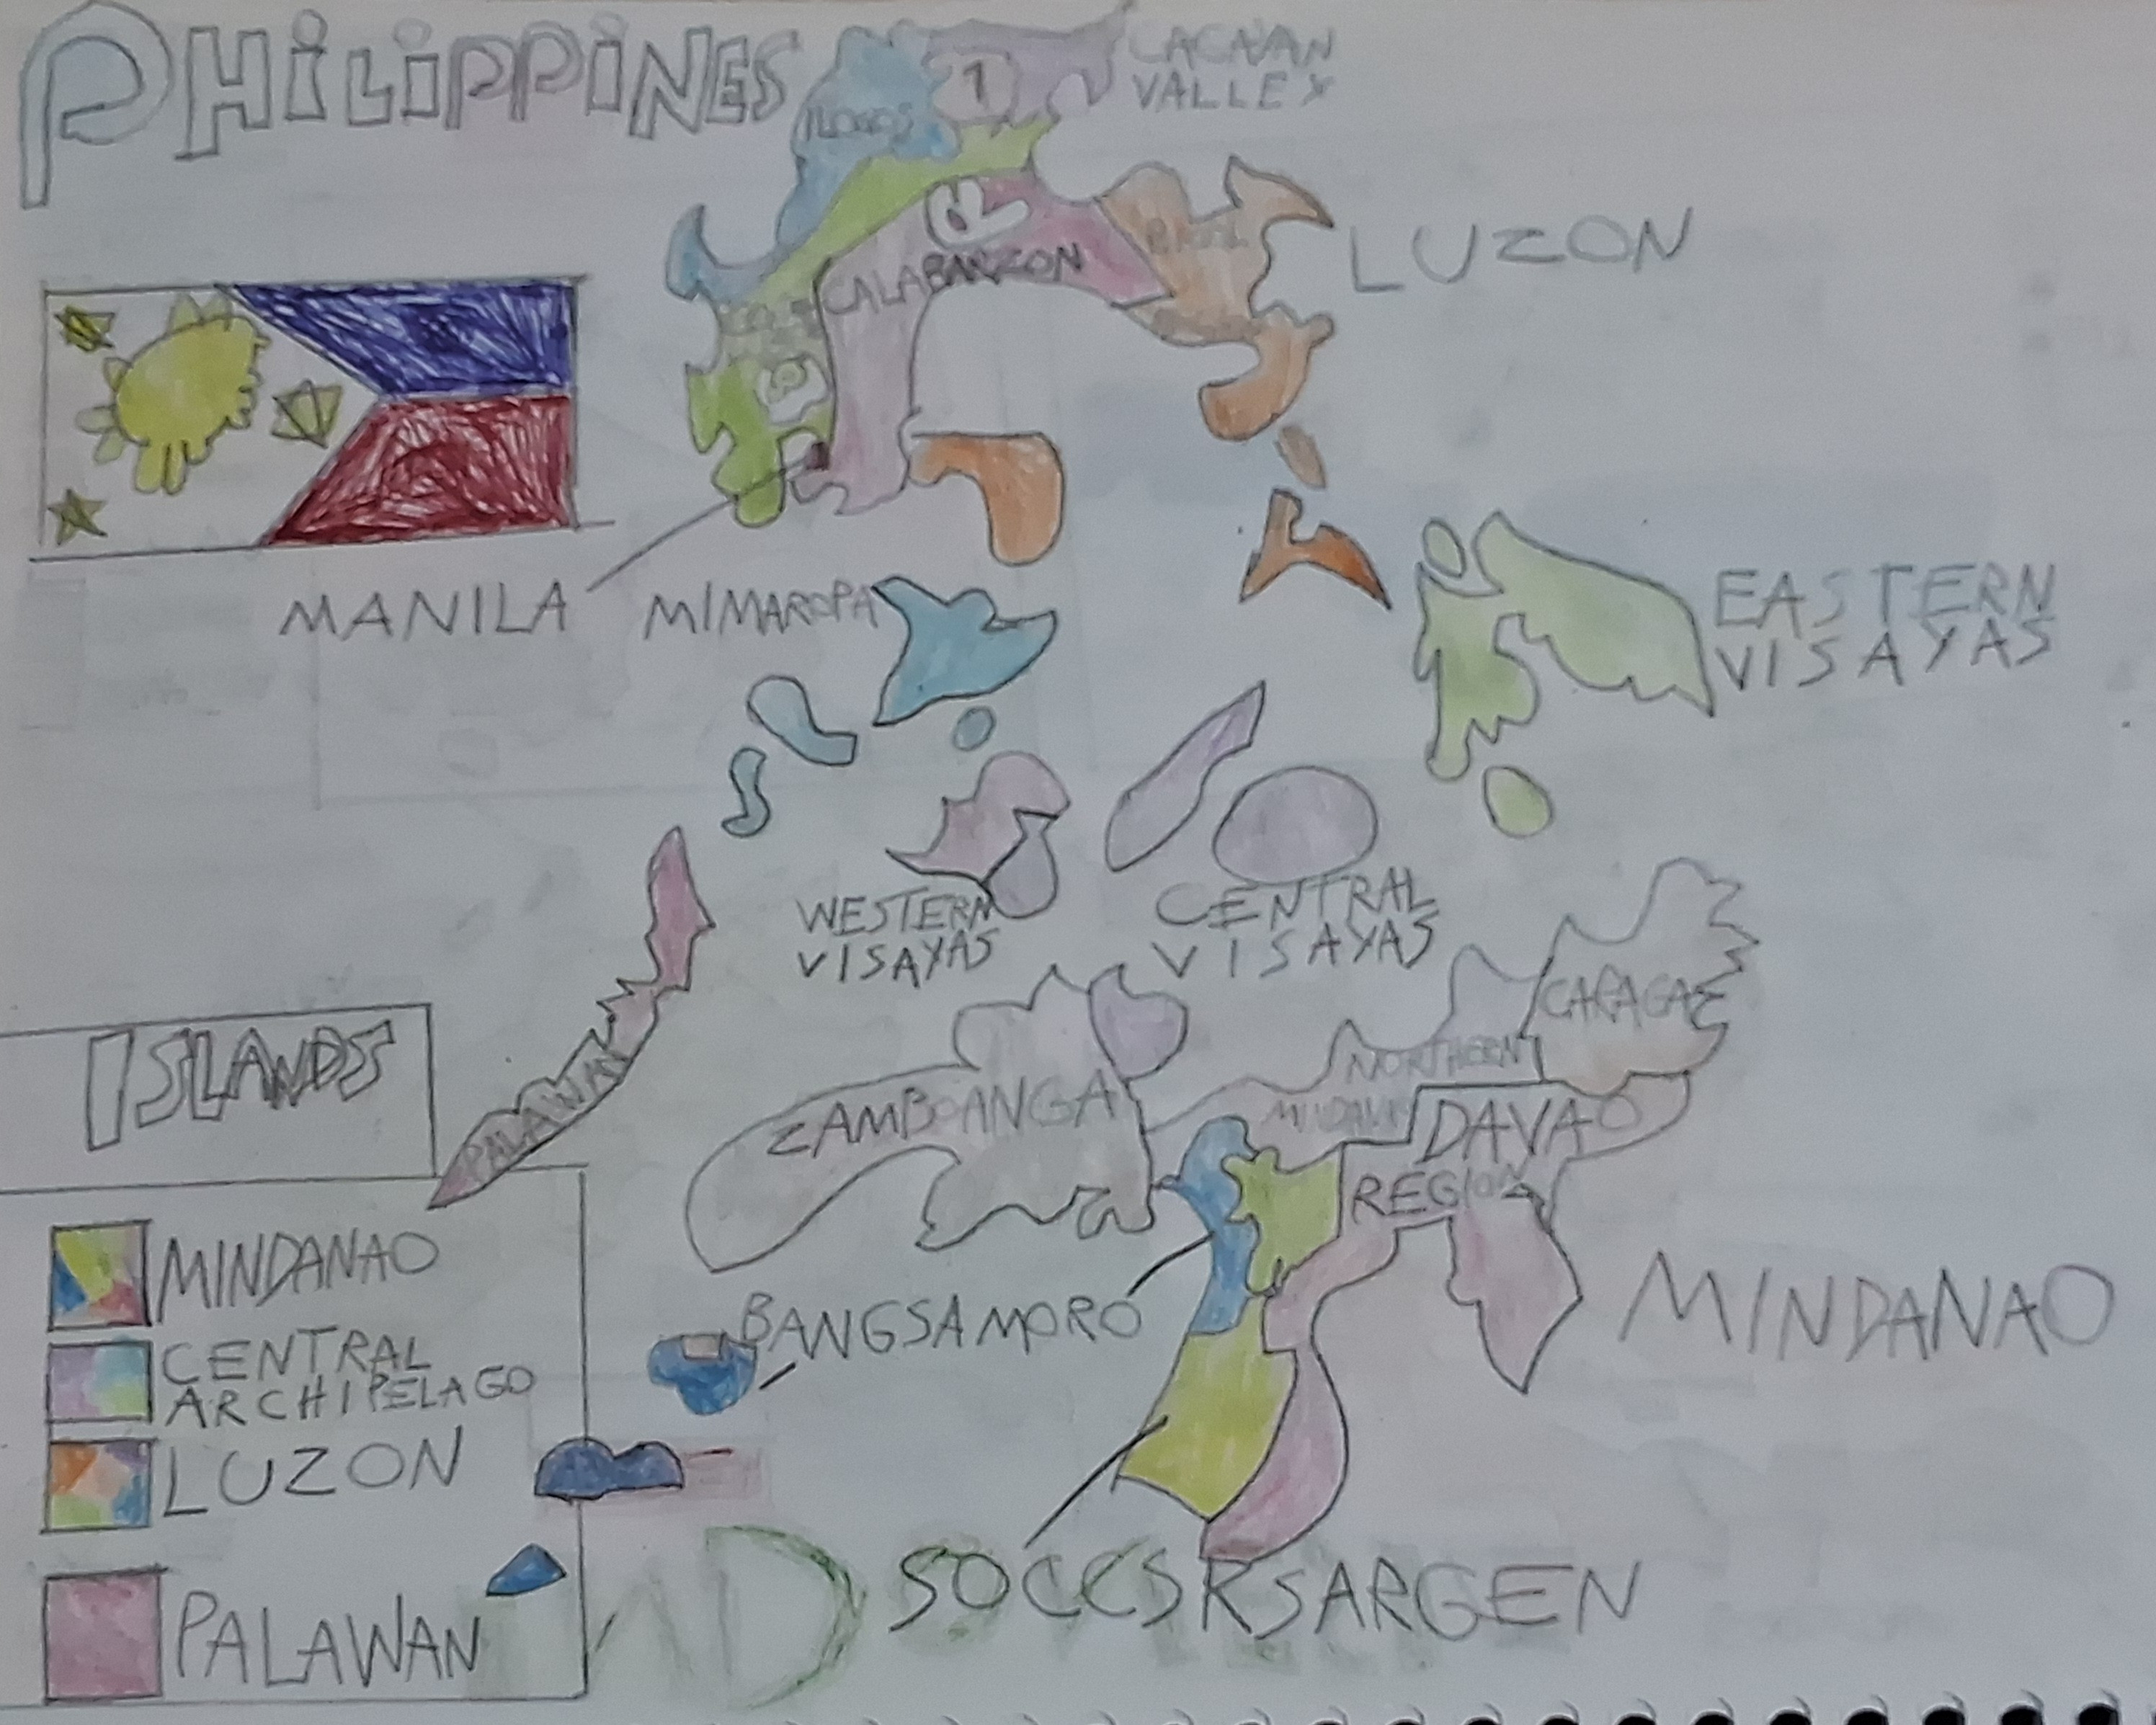 PHILIPPINES
CAGAYAN
VALLEY
1
ILOCOS
LUZON
CALABARZON
MANILA
MIMAROPA
EASTERN
VISAYAS
WESTERN
VISAYAS
CENTRAL
VISAYAS
PALAWAN
ISLANDS
CARAGA
NORTHERN
ZAMBOANGA
DAVAO
REGION
MINDANAO
CENTRAL
ARCHIPELAGO
LUZON
PALAWAN
BANGSAMORO
MINDANAO
SOCCSKSARGEN